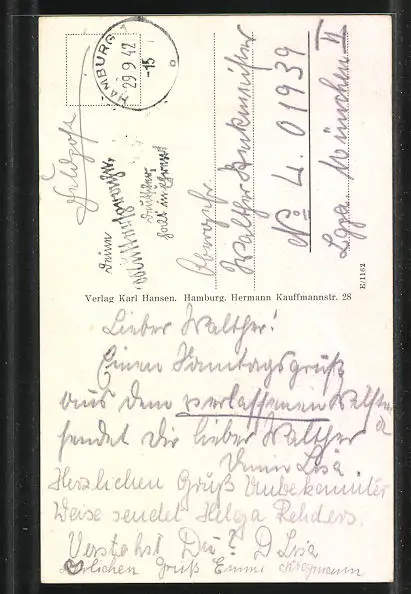 Feldpost
HAMBURG 1
29.9.42
-15
Deine
Obergefr.
Walther
No L. 01939
Lgpa. München II
Verlag Karl Hansen. Hamburg. Hermann Kauffmannstr. 28
E/1162
Lieber Walther!
Einen Sonntagsgruß
aus dem verlassenen
sendet Dir lieber Walther
Deine Lisa
Herzlichen Gruß Unbekannter
Weise sendet Helga Rehders.
Verstehst Du? D Lisa
Herzlichen Gruß Emmi Krogmann